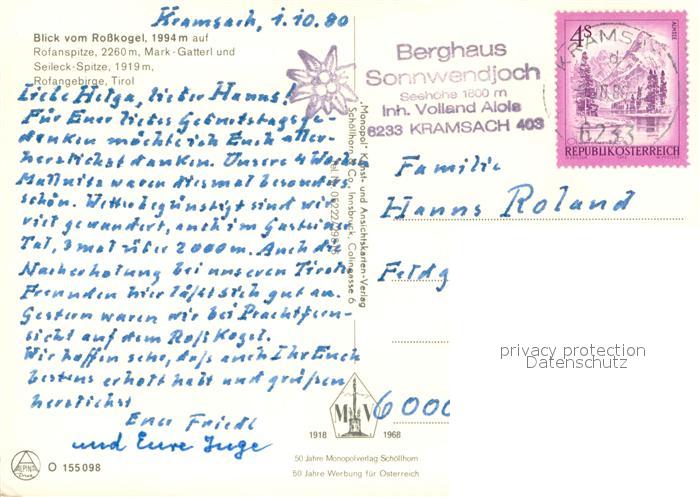 Kramsach, 1.10.80
Blick vom Roßkogel, 1994 m auf
Rofanspitze, 2260 m, Mark-Gatterl und
Seileck-Spitze, 1919 m,
Rofangebirge, Tirol
Liebe Helga, lieber Hanns!
Für Euer liebes Geburtstagsge-
danken möchte ich Euch aller-
herzlichst danken. Unsere 4 Wochen
Mallnitz waren diesmal besonders
schön. Wetterbegünstigt sind wir
viel gewandert, auch im Gasteiner
Tal, 3 mal über 2000 m. Auch die
Nacherholung bei unseren Tiroler
Freunden hier läßt sich gut an.
Gestern waren wir bei Prachtfern-
sicht auf dem Roßkogel.
Wir hoffen sehr, daß auch Ihr Euch
bestens erholt habt und grüßen
herzlichst
Euer Friedl
und Eure Inge
ALPINA
Druck
O 155098
"Monopol" Kunst- und Ansichtskarten-Verlag
Schöllhorn & Co., Innsbruck, Colingasse 6
MV
1918 1968
50 Jahre Monopolverlag Schöllhorn
50 Jahre Werbung für Österreich
Berghaus
Sonnwendjoch
Seehöhe 1800 m
Inh. Volland Alois
6233 KRAMSACH 403
4 S
ALMSEE
REPUBLIK ÖSTERREICH
KRAMSA
6233
Familie
Hanns Roland
Feldg
6000
privacy protection
Datenschutz